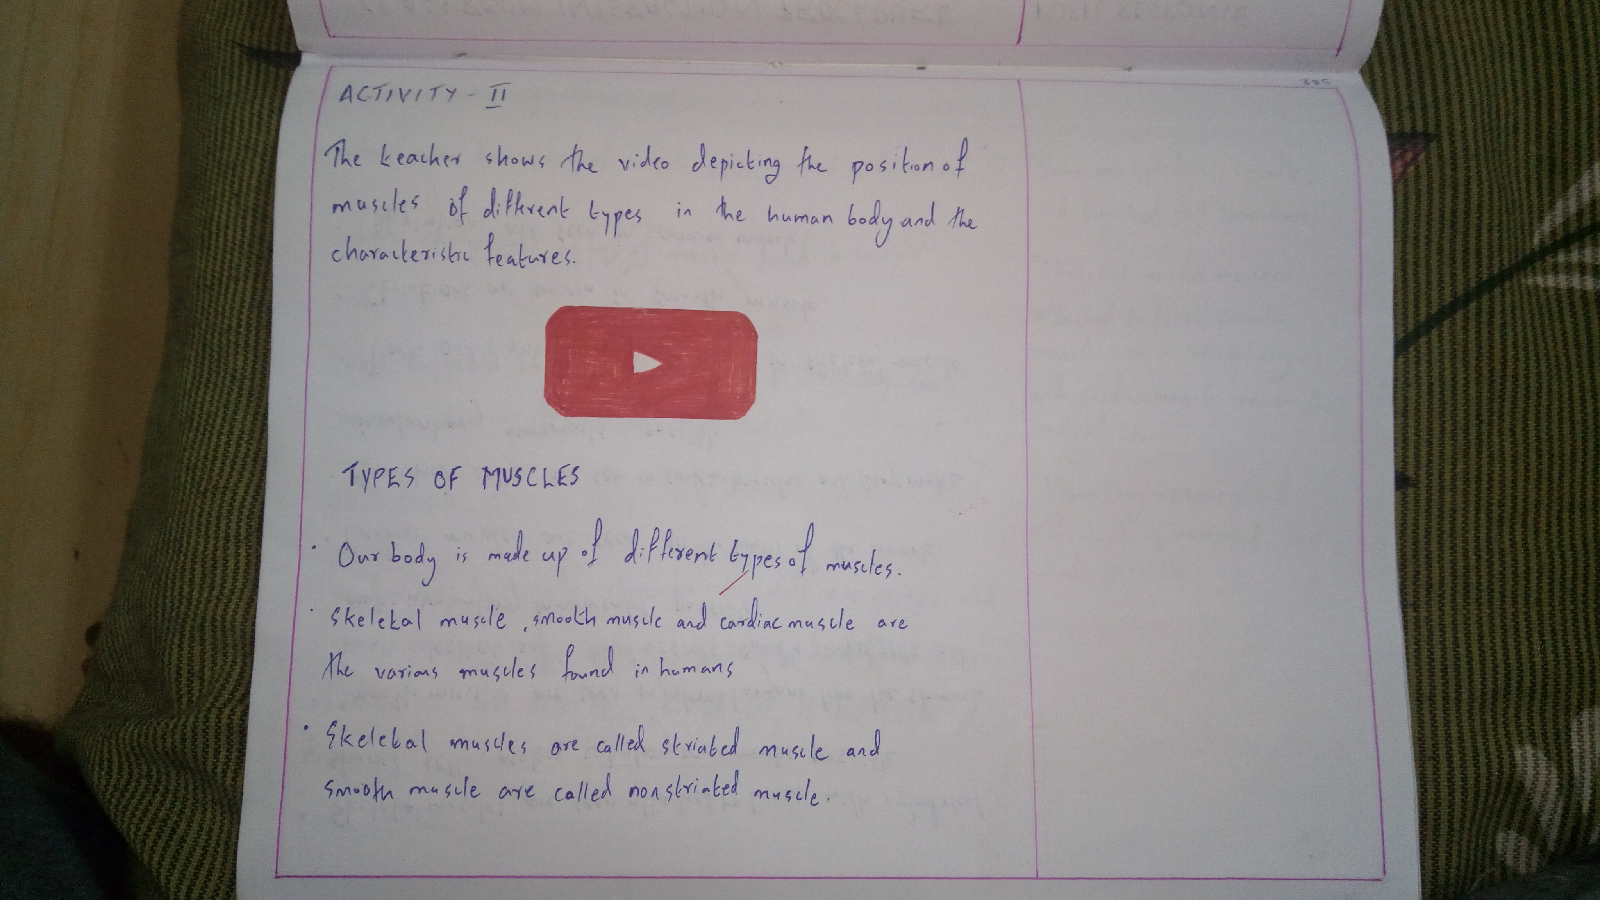 ACTIVITY - II
The teacher shows the video depicting the position of
muscles of different types in the human body and the
characteristic features.
TYPES OF MUSCLES
• Our body is made up of different types of muscles.
• Skeletal muscle, smooth muscle and cardiac muscle are
the various muscles found in humans
• Skeletal muscles are called striated muscle and
smooth muscle are called nonstriated muscle.